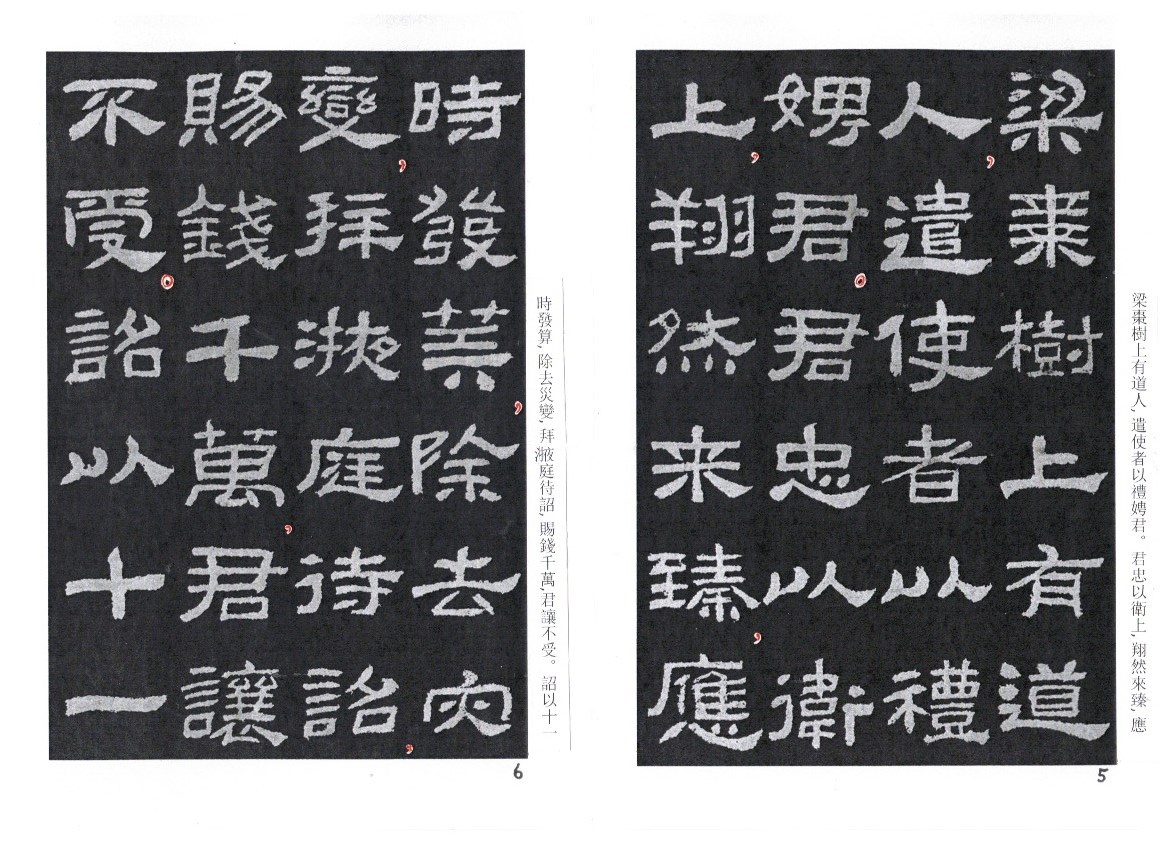 梁棗樹上有道人,遣使者以禮娉君。君忠以衛上,翔然來臻,應
梁棗樹上有道
人,遣使者以禮
娉君。君忠以衛
上,翔然来臻,應
5
時發算,除去災變,拜液庭待詔,賜錢千萬,君讓不受。詔以十一
時發筭,除去灾
變,拜液庭待詔,
賜錢千萬,君讓
不受。詔以十一
6